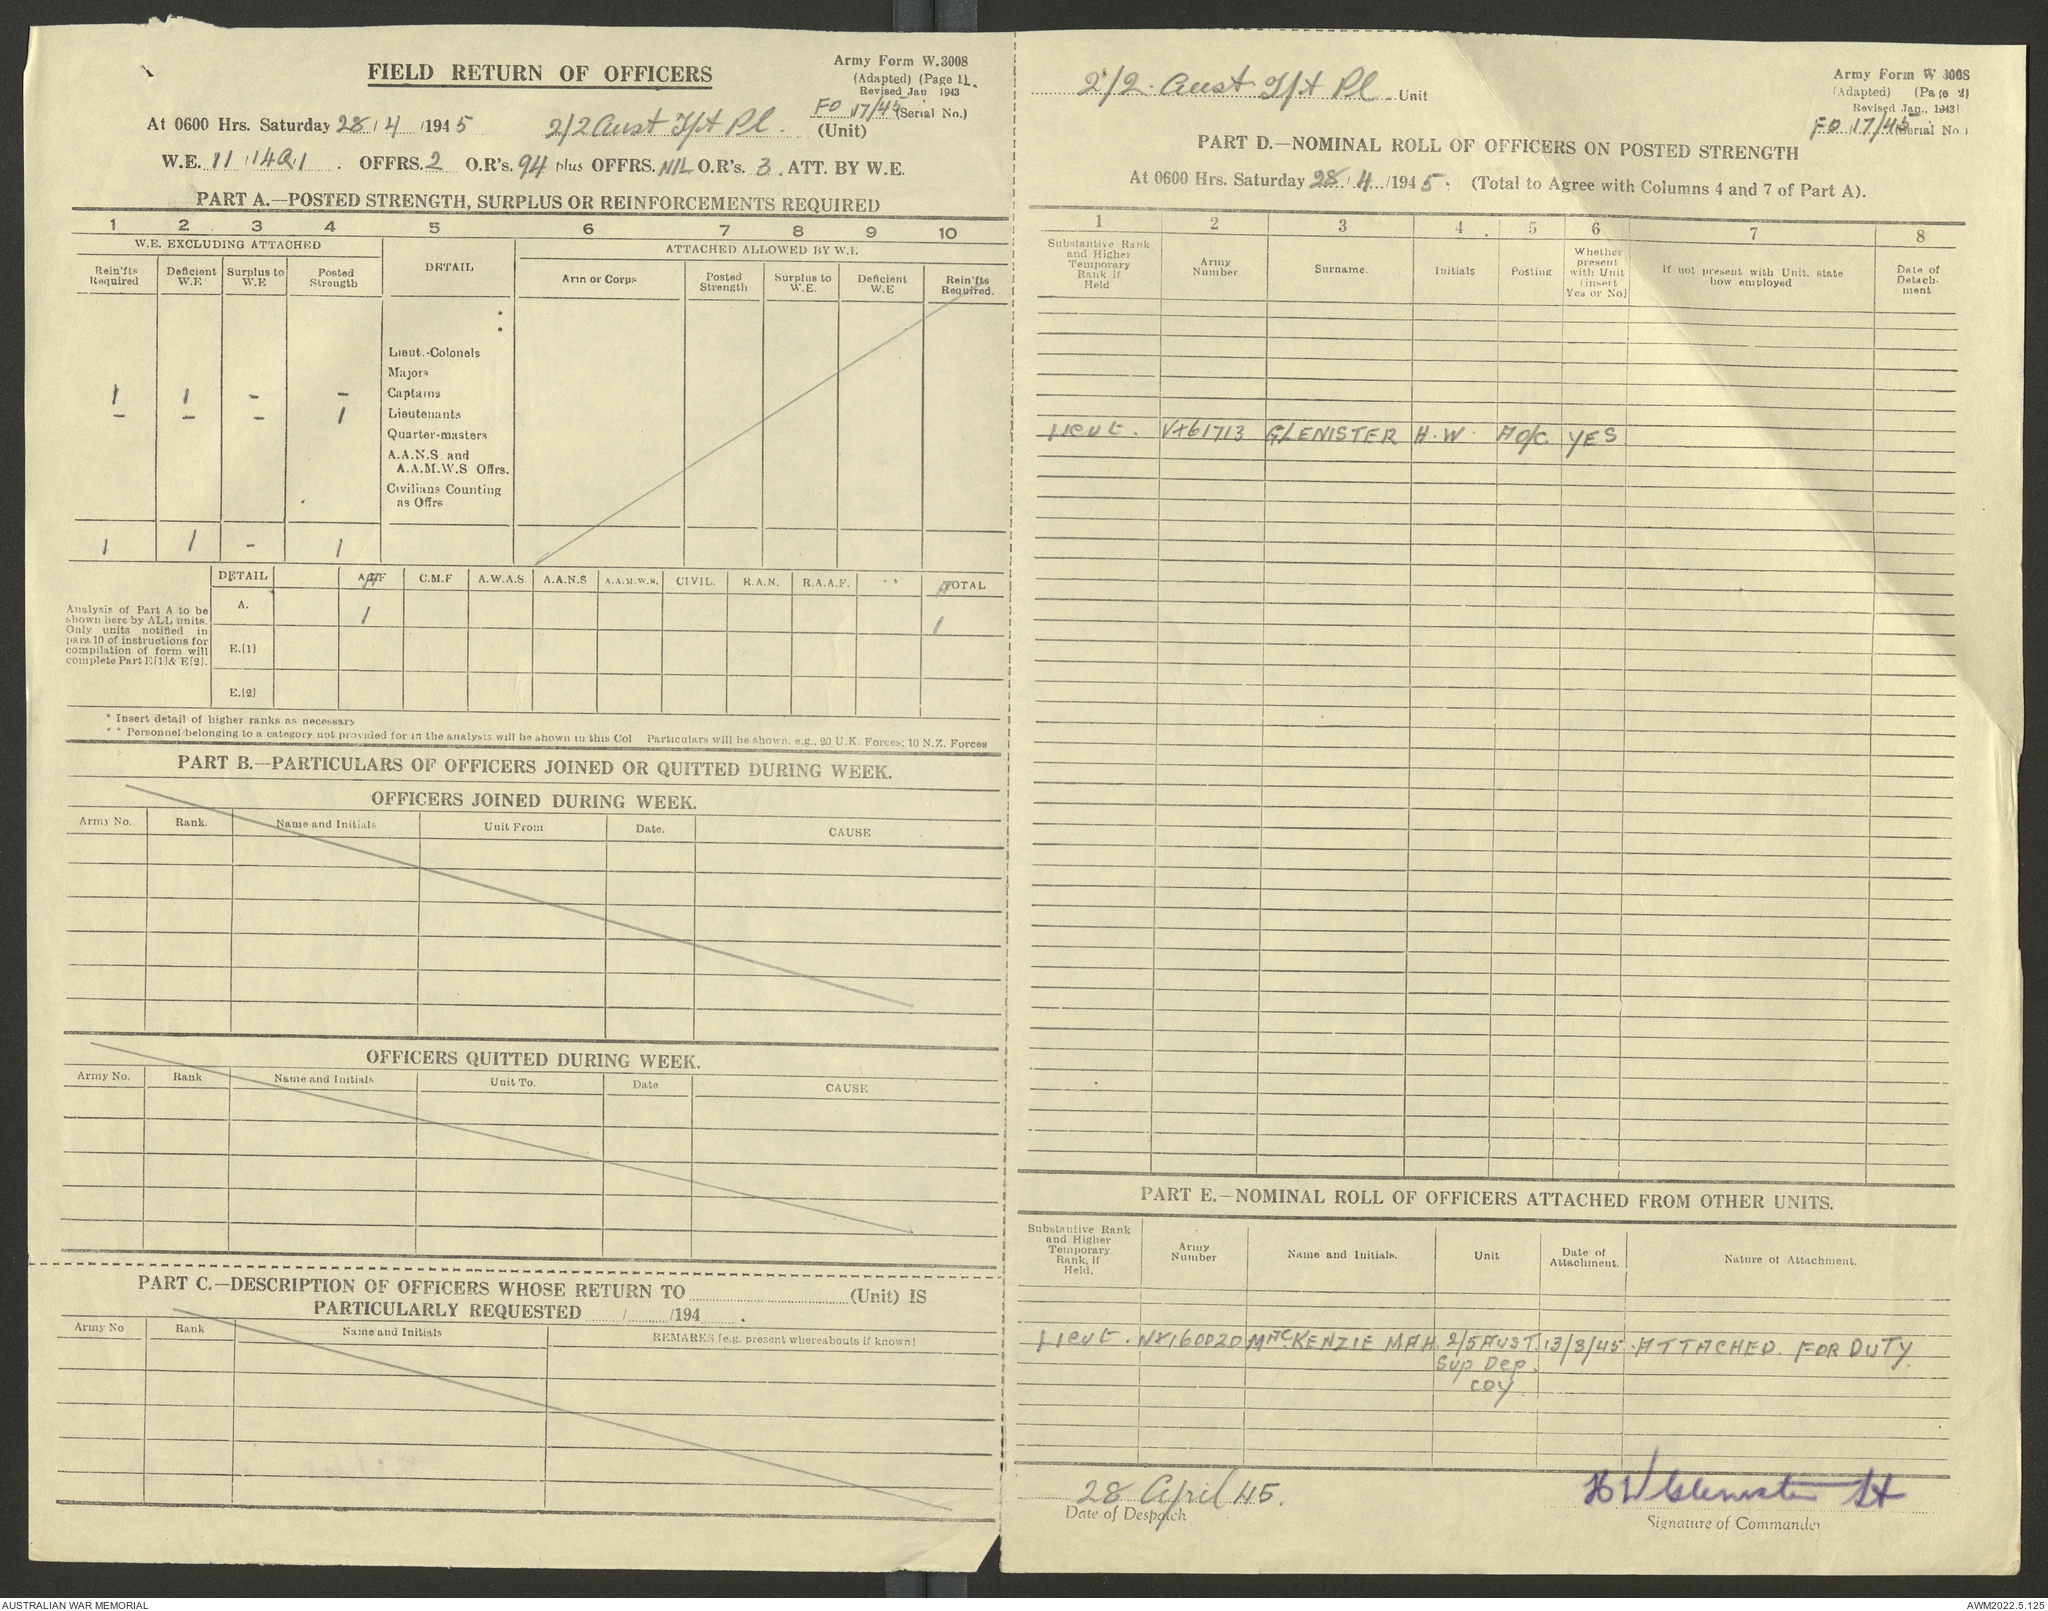 FIELD RETURN OF OFFICERS
Army Form W.3008
(Adapted) (Page 1).
Revised Jan 1943
FO 17/45 (Serial No.)
At 0600 Hrs. Saturday 28/4/1945 2/2 Aust T/t Pl. (Unit)
W.E. 11/140/1. OFFRS. 2 O.R's. 94 plus OFFRS. NIL O.R's. 3. ATT. BY W.E.
PART A.—POSTED STRENGTH, SURPLUS OR REINFORCEMENTS REQUIRED
1 2 3 4 5 6 7 8 9 10
W.E. EXCLUDING ATTACHED DETAIL ATTACHED ALLOWED BY W.E.
Rein'fts Required Deficient W.E Surplus to W.E Posted Strength Arm or Corps Posted Strength Surplus to W.E. Deficient W.E Rein'fts Required.
Lieut.-Colonels
Majors
1 1 - - Captains
- - - 1 Lieutenants
Quarter-masters
A.A.N.S. and
A.A.M.W.S Offrs.
Civilians Counting
as Offrs
1 1 - 1
DETAIL A.I.F C.M.F A.W.A.S. A.A.N.S A.A.M.W.S. CIVIL. R.A.N. R.A.A.F. ** TOTAL
Analysis of Part A to be
shown here by ALL units.
Only units notified in
para 10 of instructions for
compilation of form will
complete Part E[1] & E[2].
A. 1 1
E.[1]
E.[2]
* Insert detail of higher ranks as necessary
** Personnel belonging to a category not provided for in the analysis will be shown in this Col Particulars will be shown, e.g., 20 U.K. Forces; 10 N.Z. Forces
PART B.—PARTICULARS OF OFFICERS JOINED OR QUITTED DURING WEEK.
OFFICERS JOINED DURING WEEK.
Army No. Rank. Name and Initials Unit From Date. CAUSE
OFFICERS QUITTED DURING WEEK.
Army No. Rank Name and Initials Unit To. Date CAUSE
PART C.—DESCRIPTION OF OFFICERS WHOSE RETURN TO (Unit) IS
PARTICULARLY REQUESTED / /194 .
Army No Rank Name and Initials REMARKS [e.g. present whereabouts if known]
2/2. Aust T/t Pl Unit
Army Form W 3008
(Adapted) (Page 2)
Revised Jan., 1943
FO 17/45 (Serial No)
PART D.—NOMINAL ROLL OF OFFICERS ON POSTED STRENGTH
At 0600 Hrs. Saturday 28/4/1945. (Total to Agree with Columns 4 and 7 of Part A).
1 2 3 4 5 6 7 8
Substantive Rank and Higher Temporary Rank if Held Army Number Surname. Initials Posting Whether present with Unit [insert Yes or No] If not present with Unit, state how employed Date of Detachment
Lieut. VX61713 GLENISTER H.W. A O/C YES
PART E.—NOMINAL ROLL OF OFFICERS ATTACHED FROM OTHER UNITS.
Substantive Rank and Higher Temporary Rank, if Held. Army Number Name and Initials. Unit Date of Attachment. Nature of Attachment.
Lieut. NX160020 MacKENZIE MAH. 2/5 AUST. 13/3/45. ATTACHED FOR DUTY.
Sup Dep.
COY
28 April 45.
Date of Despatch
H W Glenister Lt
Signature of Commander
AUSTRALIAN WAR MEMORIAL
AWM2022.5.125